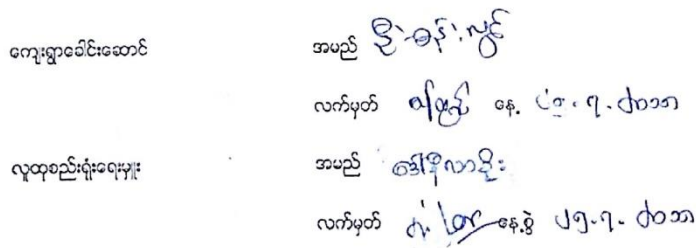 ကျေးရွာခေါင်းဆောင် အမည် ဦးစန်းလွင်
လက်မှတ် နေ့
လူထုစည်းရုံးရေးမှူး အမည် ဒေါ်နီလာဦး
လက်မှတ် နေ့စွဲ ၂၅.၇.၂၀၁၁